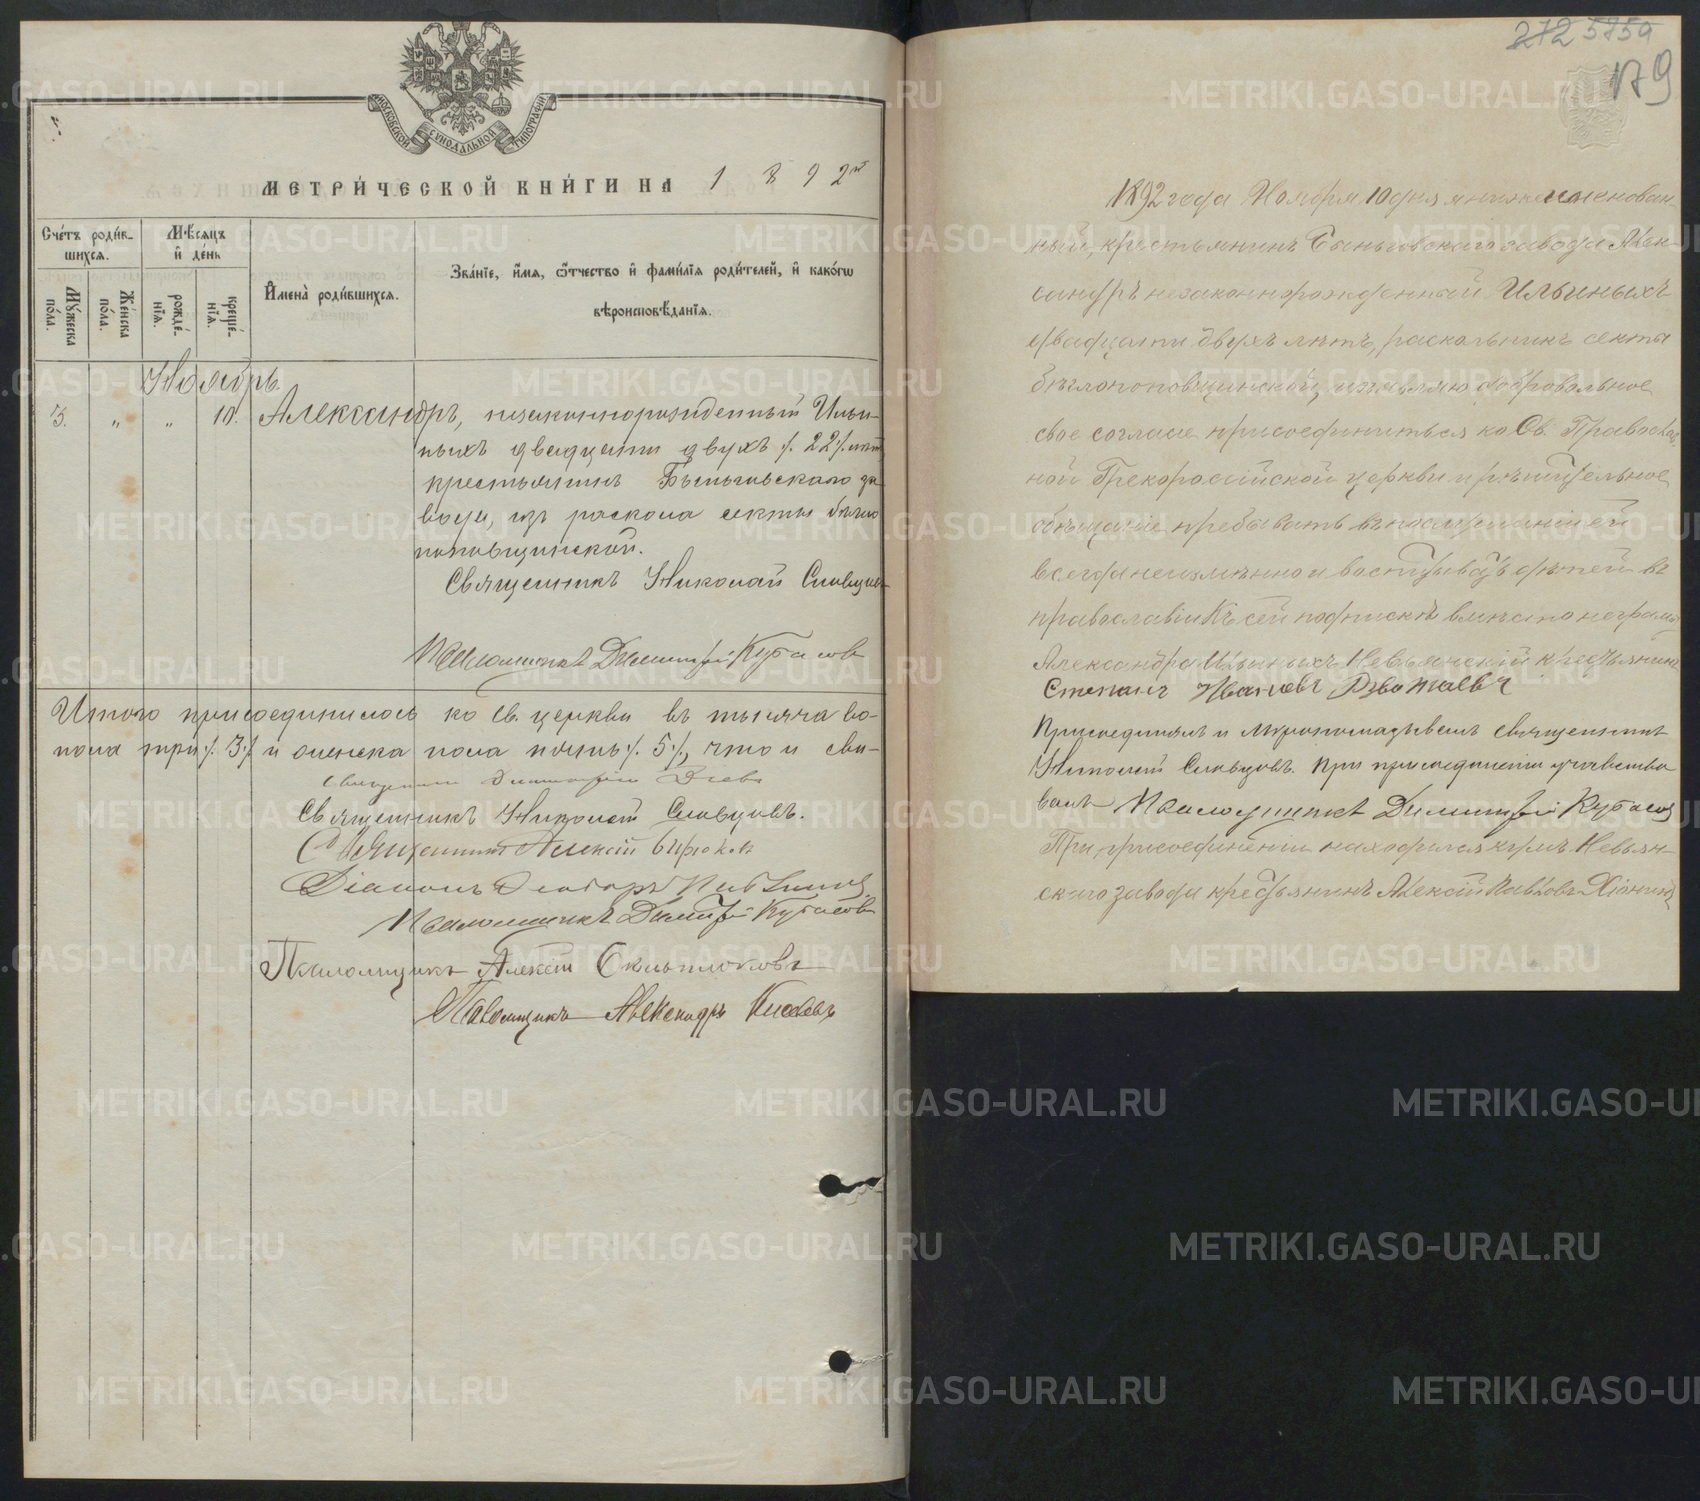 МОСКОВСКОЙ СѴНОДАЛЬНОЙ ТИПОГРАФІИ
МЕТРИ́ЧЕСКОЙ КНИ́ГИ НА 1892й
Сче́тъ роди́в-
шихся.
Мꙋ́жеска
по́ла.
Же́нска
по́ла.
Мѣ́сяцъ
и҆ де́нь
рожде́-
нїѧ.
креще́-
нїѧ.
И҆мена̀ роди́вшихсѧ.
Зва́нїе, и҆́мѧ, ѻ҆́тчество и҆ фами́лїѧ роди́телей, и҆ како́гѡ
вѣроисповѣ́данїѧ.
Ноябрь
3. „ „ 10. Александръ, незаконнорожденный Ильи-
ныхъ двадцати двухъ ⁒ 22 ⁒ лѣтъ
крестьянинъ Быньговскаго за
вода, изъ раскола секты бѣгло
поповщинской.
Священникъ Николай Словцовъ
Псаломщикъ Димитрій Кубасовъ
Итого присоединилось ко св. церкви въ
пола три ⁒ 3 ⁒ и женска пола пять ⁒ 5 ⁒, что и сви-
Священникъ Николай Словцовъ.
Священникъ Алексій Бирюков
Діаконъ
Псаломщикъ Димитрій Кубасовъ
Псаломщикъ Алексій
Псаломщикъ Александръ Киселевъ
272 585а
179
1892 года Ноября 10 дня я нижепоименован-
ный, крестьянинъ Быньговскаго завода Алек-
сандръ незаконнорожденный Ильиныхъ
двадцати двухъ лѣтъ, раскольникъ секты
бѣглопоповщинской, изъявляю добровольное
свое согласіе присоединиться ко Св. Православ-
ной Грекороссійской церкви и рѣшительное
обѣщаніе пребывать въ послушаніи ей
всегда неизмѣнно и воспитывать дѣтей въ
православіи. Къ сей подпискѣ вмѣсто неграмот
Александра Ильиныхъ Невьянскій крестьянинъ
Степанъ Ивановъ
Присоединялъ и мѵропомазывалъ священникъ
Николай Словцовъ. При присоединеніи участво
валъ Псаломщикъ Димитрій Кубасов
При присоединеніи находился кумъ Невьян-
скаго завода крестьянинъ Алексій Павловъ
METRIKI.GASO-URAL.RU